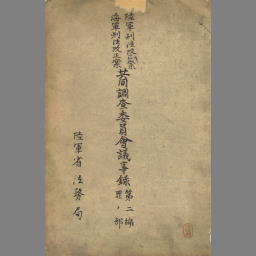 陸軍刑法改正案
海軍刑法改正案
共同調査委員會議事録 第二編
罪ノ部
陸軍省法務局